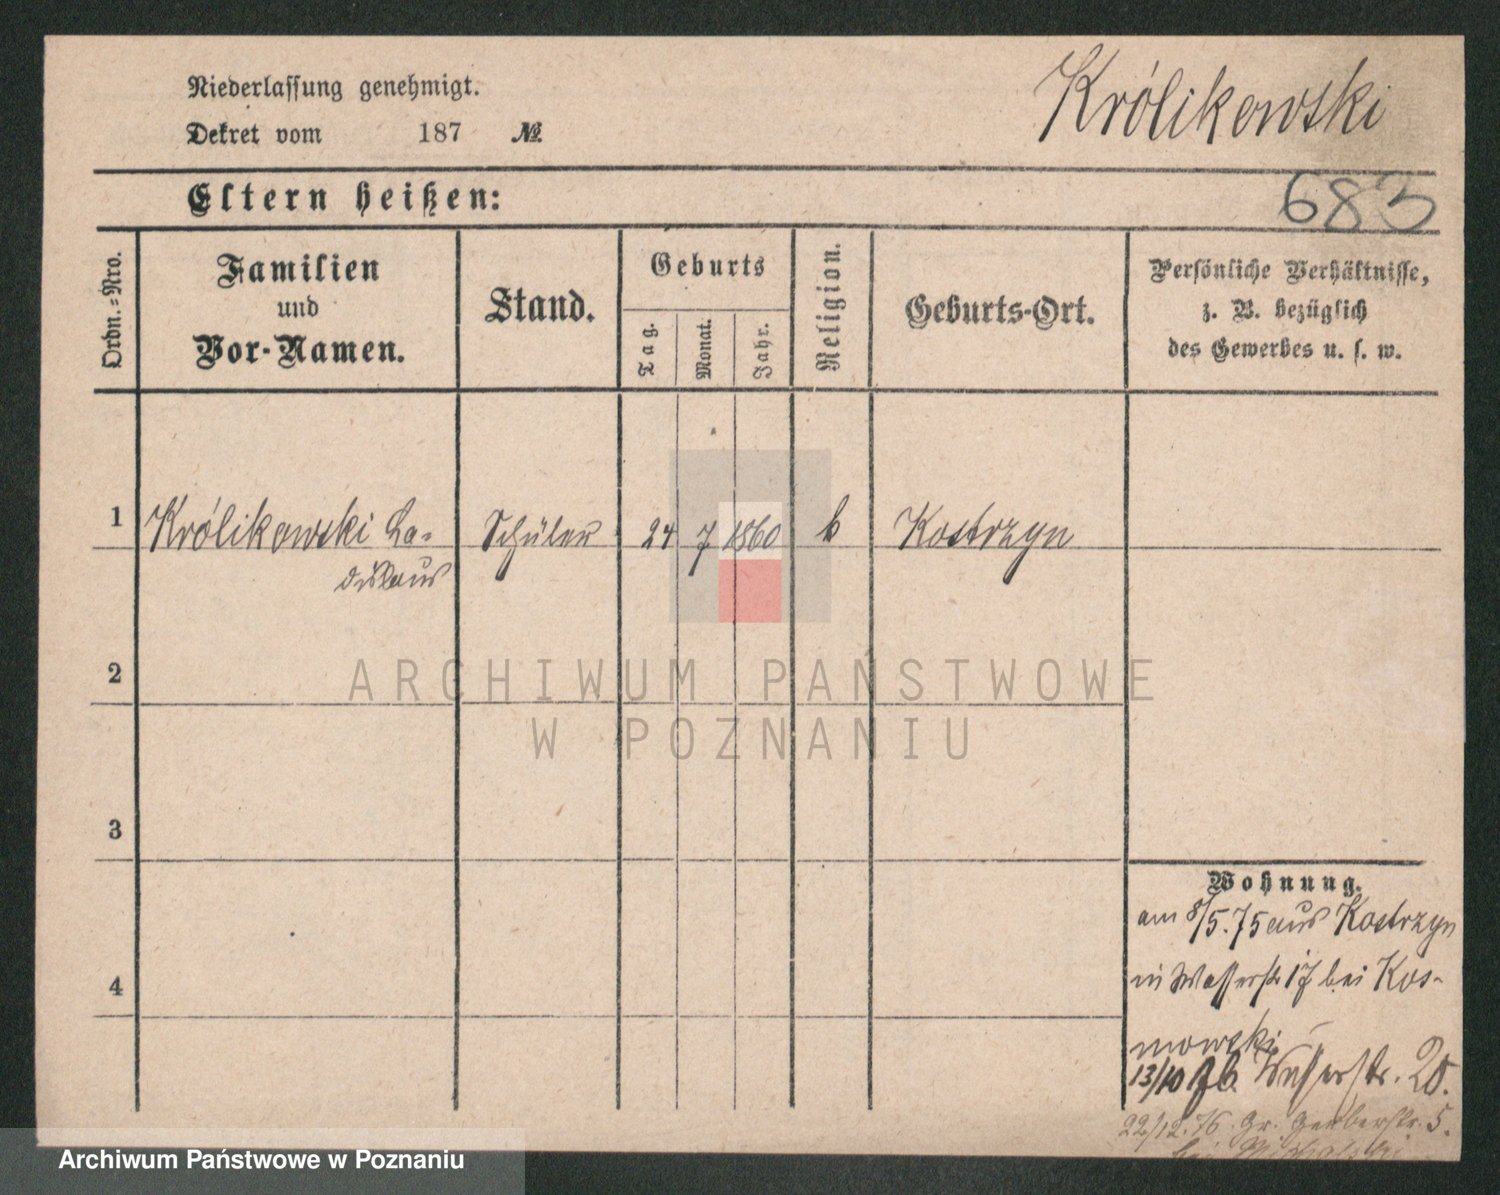 Niederlassung genehmigt.
Dekret vom 187 №
Królikowski
683
Eltern heißen:
Ordn.-Nro.
Familien
und
Vor-Namen.
Stand.
Geburts
Tag.
Monat.
Jahr.
Religion.
Geburts-Ort.
Persönliche Verhältnisse,
z. B. bezüglich
des Gewerbes u. s. w.
1 Królikowski La- Schüler 24 7 1860 k Kostrzyn
dislaus
2
3
4
ARCHIWUM PAŃSTWOWE
W POZNANIU
Wohnung.
am 8/5.75 aus Kostrzyn
in Wasserstr 17 bei Kos-
mowski
13/10 76. Wasserstr. 20.
22/12. 76. Gr. Gerberstr. 5.
bei
Archiwum Państwowe w Poznaniu